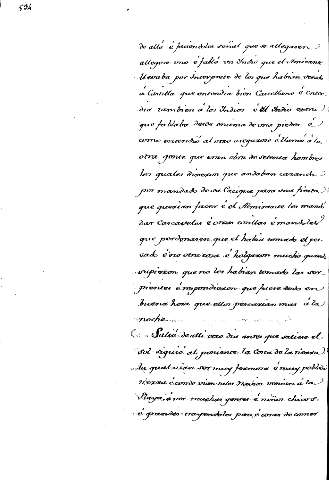 594
de allá é faciendoles señal que se allegasen
allegose uno é fabló un Indio que el Almirante
llevaba por Interprete de los que habian venido
á Castilla que entendia bien Castellano é enten-
dia tambien á los Indios é el Indio estra
que fablaba desde encima de una piedra é
como entendió al otro aseguróse é llamó á la
otra gente que eran obra de setenta hombres
los quales dixeron que andaban cazando
por mandado de su Cacique para una fiesta
que querian facer é el Almirante les mandó
dar Cascaveles é otras cosillas é mandóles
que perdonasen que el habia tomado el pes-
cado é no otra cosa é holgaron mucho quando
supieron que no les habian tomado las ser-
pientes é respondieron que fuese todo en
buena hora que ellos pescarian mas á la
noche.
Salió de allí otro dia antes que saliese el
sol siguió al poniente la Costa de la tierra
la qual vian ser muy fermosa é muy poblada
é como vian tales Navios venian á la
Playa é con muchas gentes é niños chicos
é grandes trayendoles pan é cosas de comer